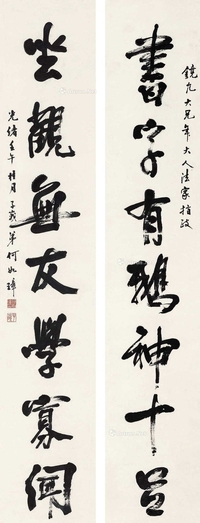 鏡九大兄年大人法家指政
書有鵝神十
坐觀無友學寡聞
光緒壬午桂月 子峩弟何如璋